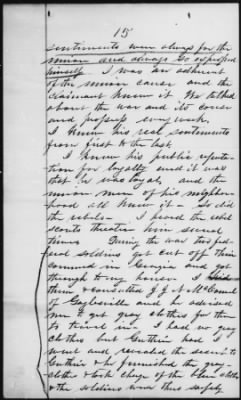 15
sentiments were always for the
union and always so expressed
himself. I was an adherent
of the union cause and the
claimant knew it. We talked
about the war and its cause
and progress every week.
I knew his real sentiments
from first to last.
I knew his public reputa-
tion for loyalty and it was
that he was loyal, and the
union men of his neighbor-
hood all knew it - So did
the rebels - I heard the rebel
scouts threaten him several
times During the war two fed-
eral soldiers got cut off from
command in Georgia and got
through to my house. I
them & consulted J. J. McConnel
of Gaylesville and he advised
me to get gray clothes for them
to travel in - I had no gray
clothes but Guthrie had I
went and revealed the secret to
Guthrie & he furnished the gray
clothes & took charge of the blue clothes
& the soldiers went thus safely